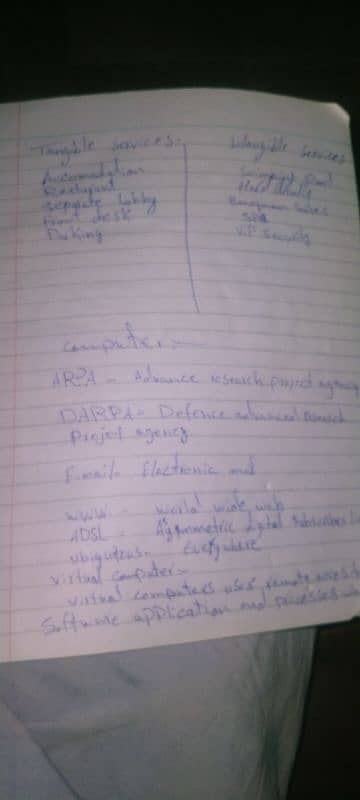 Tangible services:-
Accomodation
Restaurant
seperate lobby
Front desk
Parking
Intangible services
Swimming pool
spa
VIP security
computer:-
ARPA - Advance research project agency
DARPA - Defence advanced research
Project agency
E-mail - Electronic mail
www - world wide web
ADSL - Asymmetric digital subscriber
ubiquitous - Everywhere
virtual computer:-
virtual computers uses remote access
Software application and processes